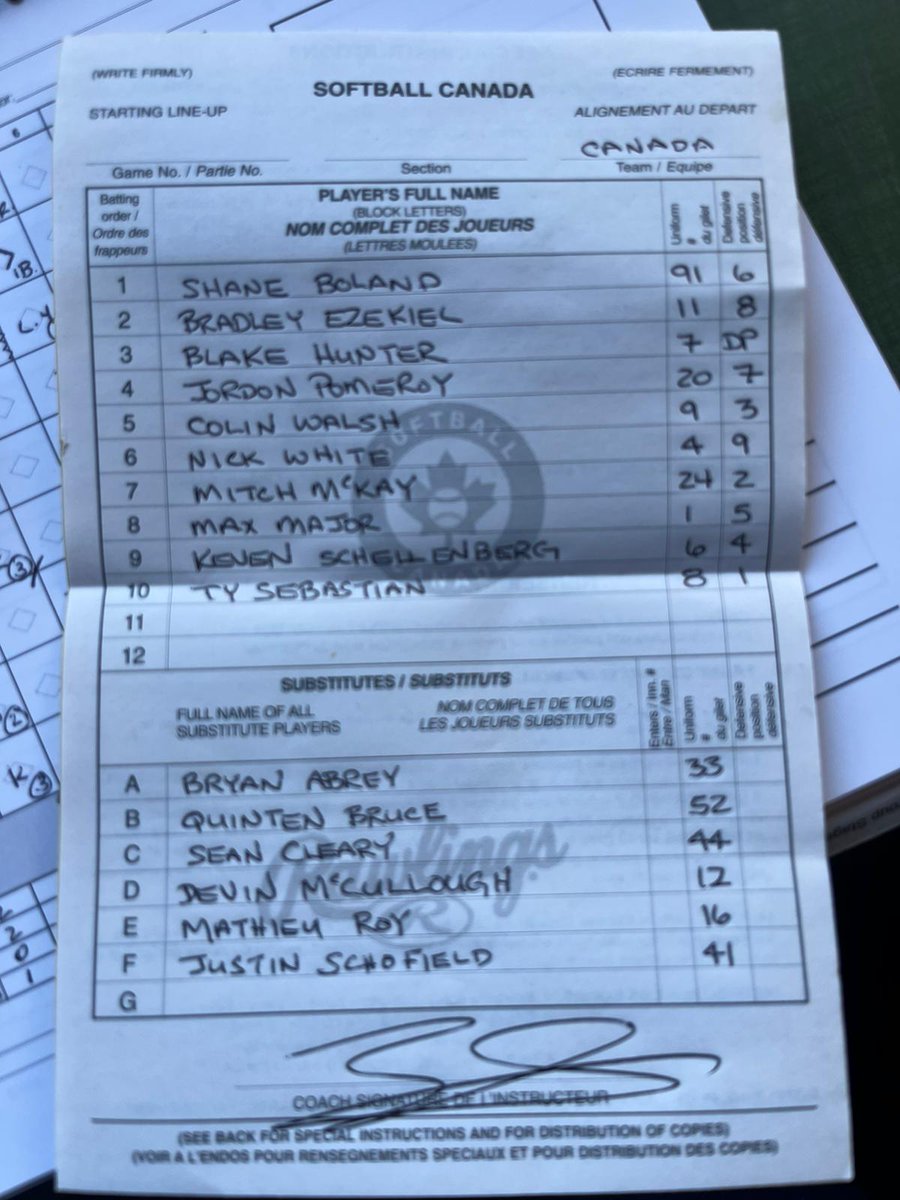 (WRITE FIRMLY) (ECRIRE FERMEMENT)
SOFTBALL CANADA
STARTING LINE-UP ALIGNEMENT AU DEPART
CANADA
Game No. / Partie No. Section Team / Equipe
Batting order / Ordre des frappeurs
PLAYER'S FULL NAME
(BLOCK LETTERS)
NOM COMPLET DES JOUEURS
(LETTRES MOULEES)
Uniform # du gilet
Defensive position défensive
1 SHANE BOLAND 91 6
2 BRADLEY EZEKIEL 11 8
3 BLAKE HUNTER 7 DP
4 JORDON POMEROY 20 7
5 COLIN WALSH 9 3
6 NICK WHITE 4 9
7 MITCH McKAY 24 2
8 MAX MAJOR 1 5
9 KEVEN SCHELLENBERG 6 4
10 TY SEBASTIAN 8 1
11
12
SOFTBALL
SUBSTITUTES / SUBSTITUTS
FULL NAME OF ALL SUBSTITUTE PLAYERS
NOM COMPLET DE TOUS LES JOUEURS SUBSTITUTS
Enters / Inn. #
Entre / Man
Uniform # du gilet
Defensive position défensive
A BRYAN ABREY 33
B QUINTEN BRUCE 52
C SEAN CLEARY 44
D DEVIN McCULLOUGH 12
E MATHIEU ROY 16
F JUSTIN SCHOFIELD 41
G
Rawlings
COACH SIGNATURE DE L'INSTRUCTEUR
(SEE BACK FOR SPECIAL INSTRUCTIONS AND FOR DISTRIBUTION OF COPIES)
(VOIR A L'ENDOS POUR RENSEGNEMENTS SPECIAUX ET POUR DISTRIBUTION DES COPIES)